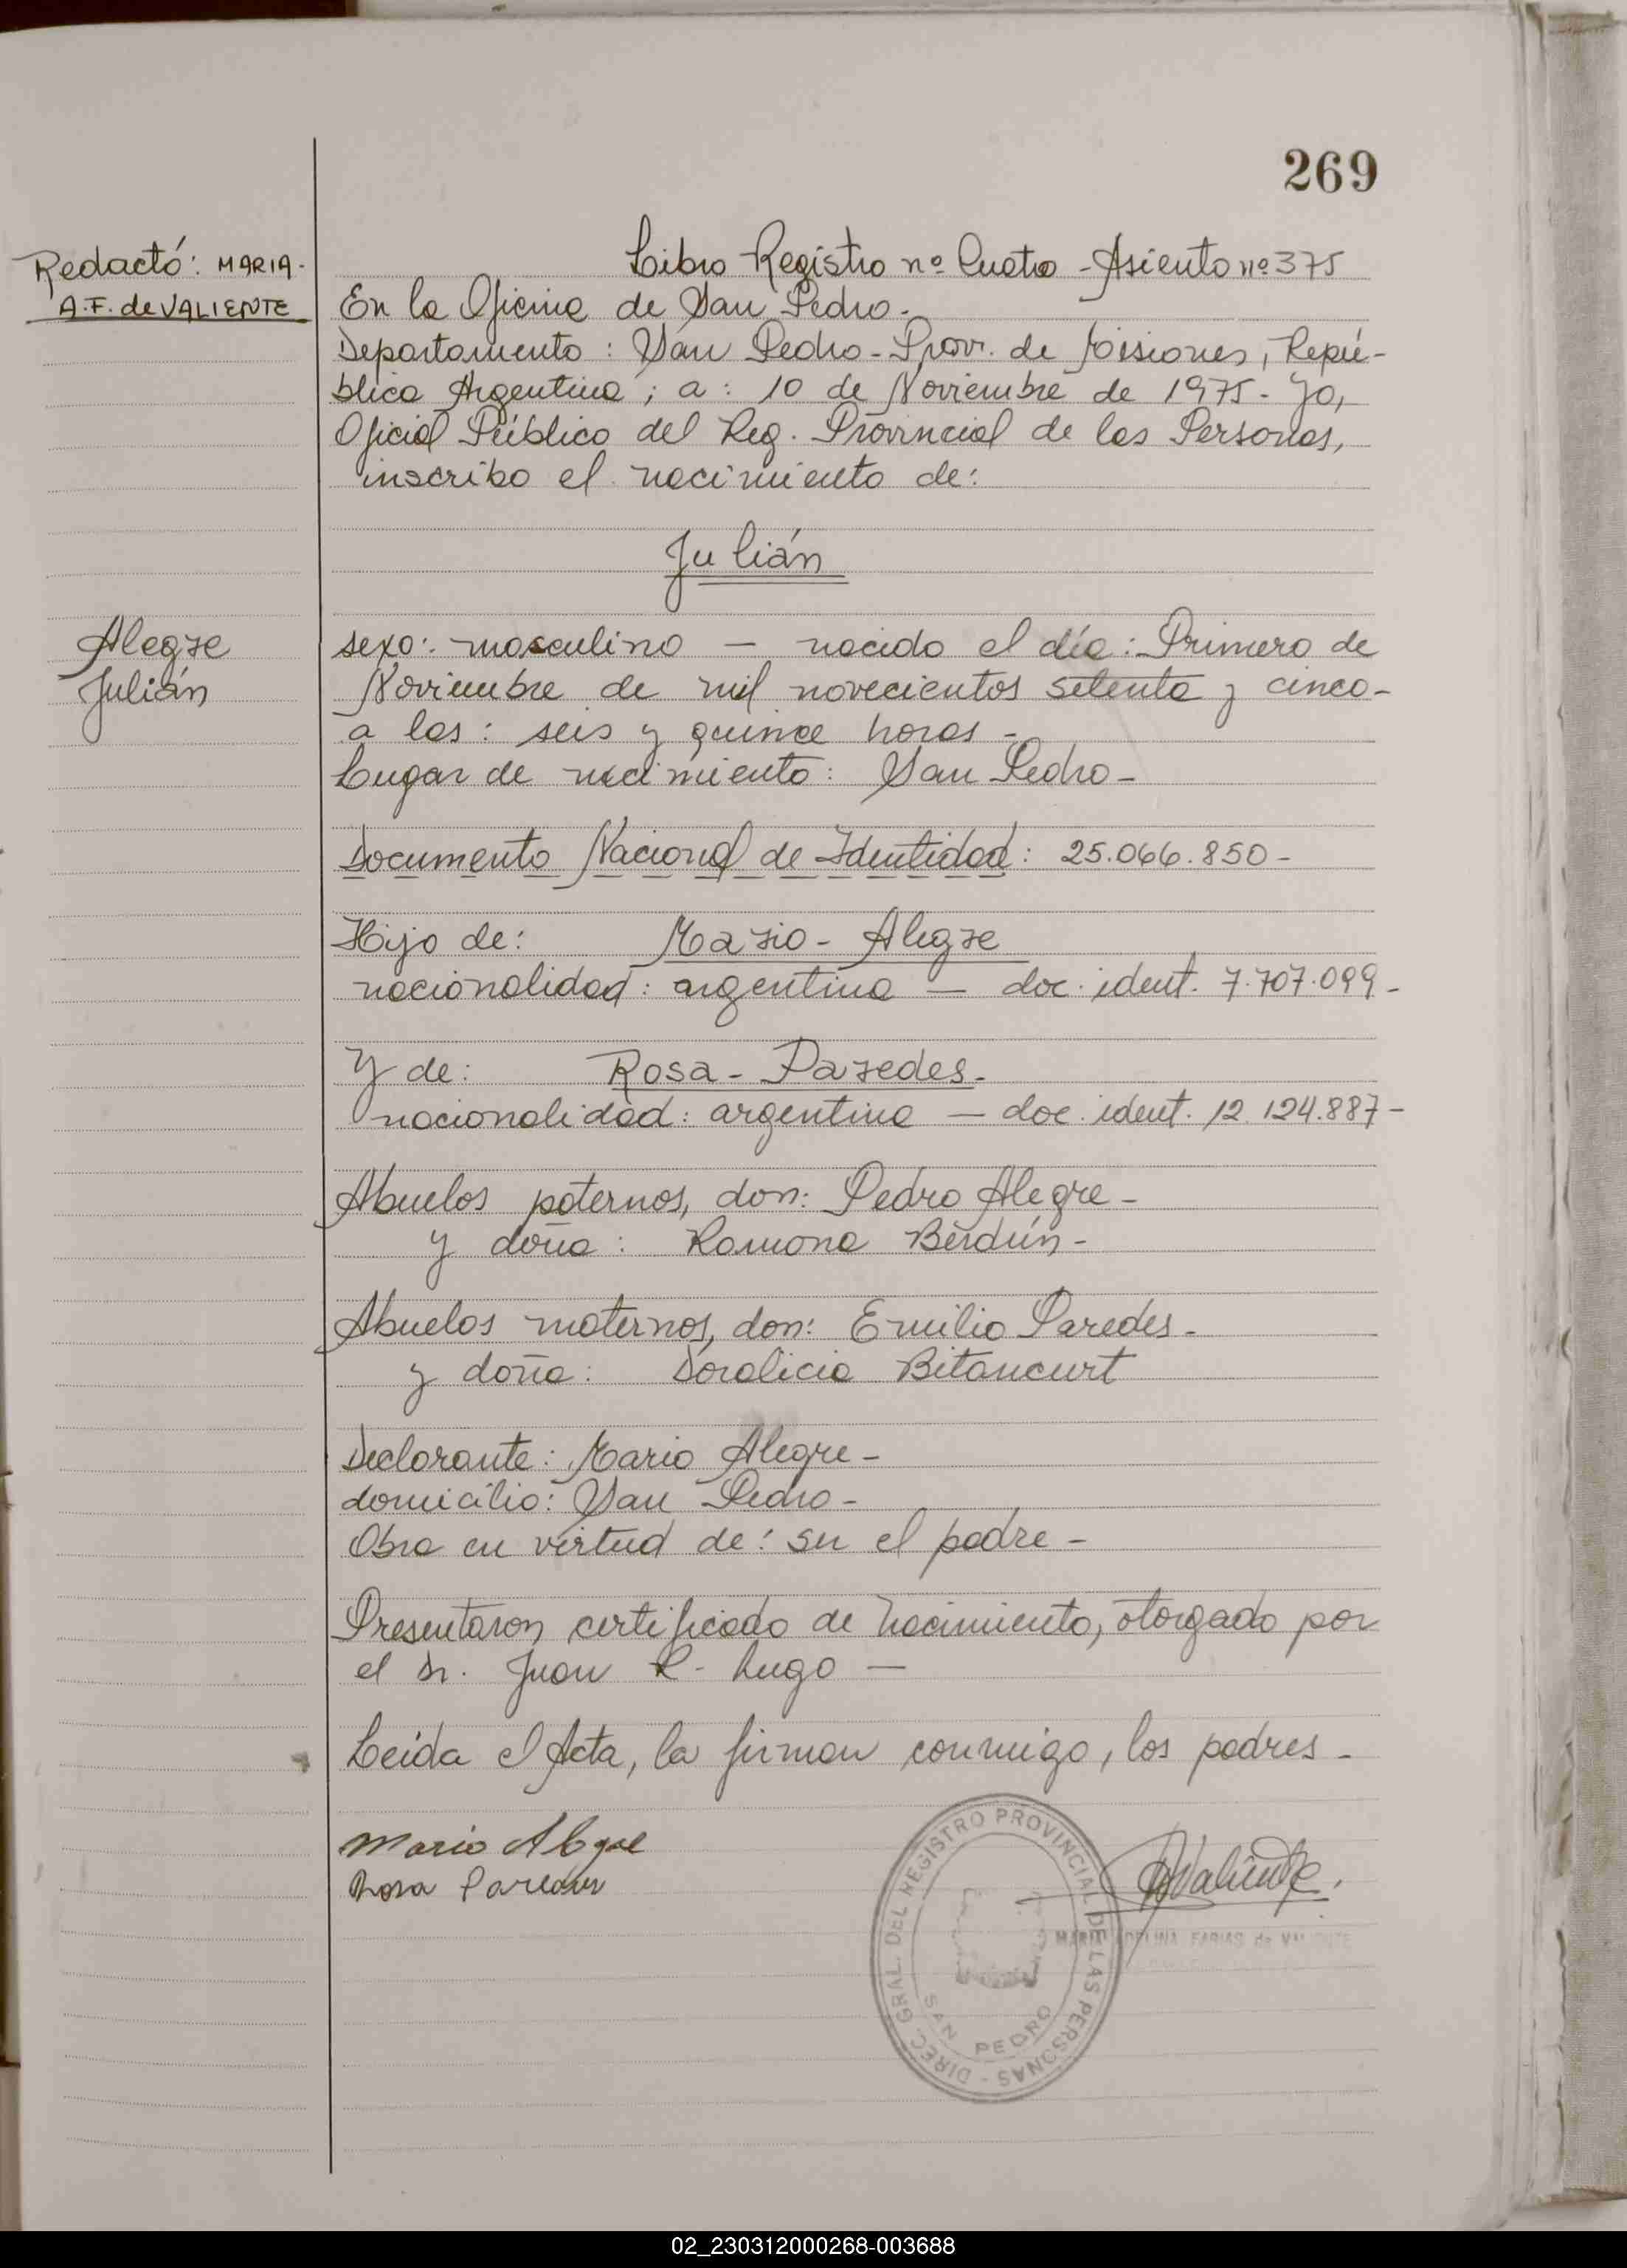 269
Libro Registro nº Cuatro - Asiento nº 375
Redactó: MARIA.
A.F. de VALIENTE
En la Oficina de San Pedro.
Departamento: San Pedro - Prov. de Misiones, Repú-
blica Argentina; a: 10 de Noviembre de 1975. Yo,
Oficial Público del Reg. Provincial de las Personas,
inscribo el nacimiento de:
Julián
Alegre
Julián
sexo: masculino — nacido el día: Primero de
Noviembre de mil novecientos setenta y cinco-
a las: seis y quince horas -
Lugar de nacimiento: San Pedro -
Documento Nacional de Identidad: 25.066.850 -
Hijo de: Mario - Alegre
nacionalidad: argentina — doc. ident. 7.707.099 -
Y de: Rosa - Paredes.
nacionalidad: argentina — doc. ident. 12.124.887 -
Abuelos paternos, don: Pedro Alegre -
y doña: Ramona Berdún -
Abuelos maternos, don: Emilio Paredes -
y doña: Doralicia Bitancurt
Declarante: Mario Alegre -
domicilio: San Pedro -
Obra en virtud de: ser el padre -
Presentaron certificado de nacimiento, otorgado por
el Dr. Juan R. Lugo —
Leída el Acta, la firman conmigo, los padres -
Mario Alegre
Rosa Paredes
DIREC. GRAL. DEL REGISTRO PROVINCIAL DE LAS PERSONAS -
SAN PEDRO
Valiente.
FARIAS de VALIENTE
02_230312000268-003688